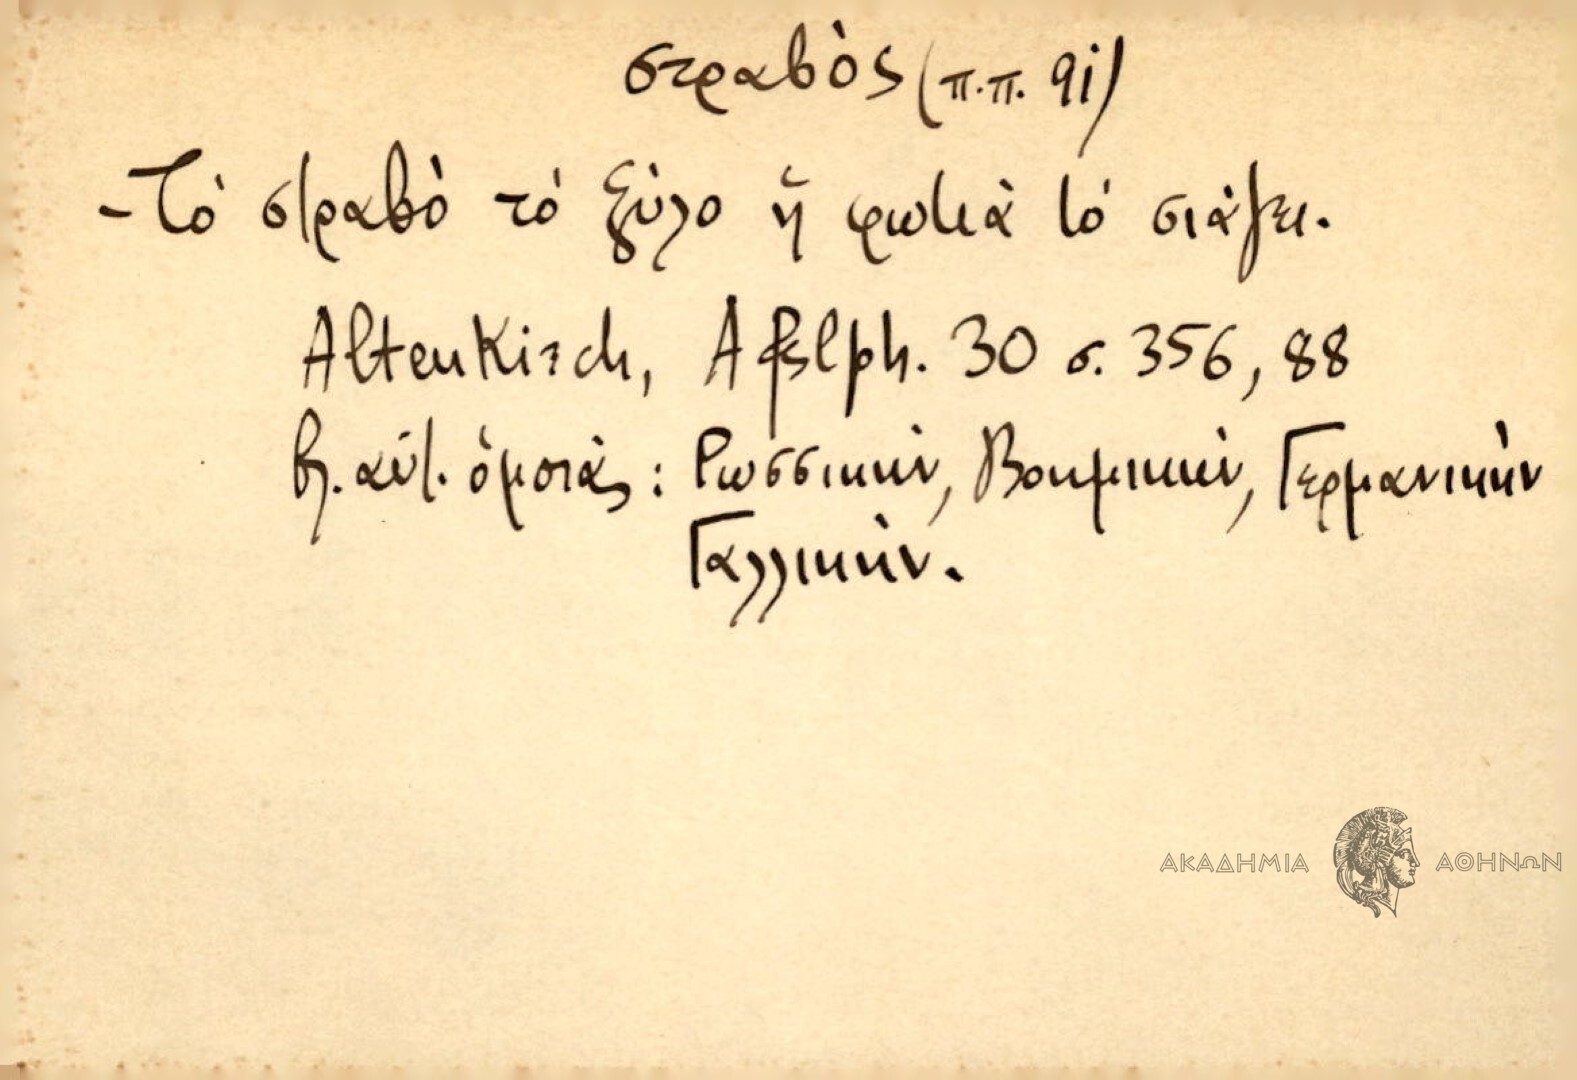 στραβὸς (π.π. 9i)
- Τὸ στραβὸ τὸ ξύλο ἡ φωτιὰ τὸ σιάζει.
Altenkirch, Afslph. 30 σ. 356, 88
βλ. αὐτ. ὁμοιὰς: Ρωσσικὴν, Βοημικὴν, Γερμανικὴν
Γαλλικὴν.
ΑΚΑΔΗΜΙΑ ΑΘΗΝΩΝ